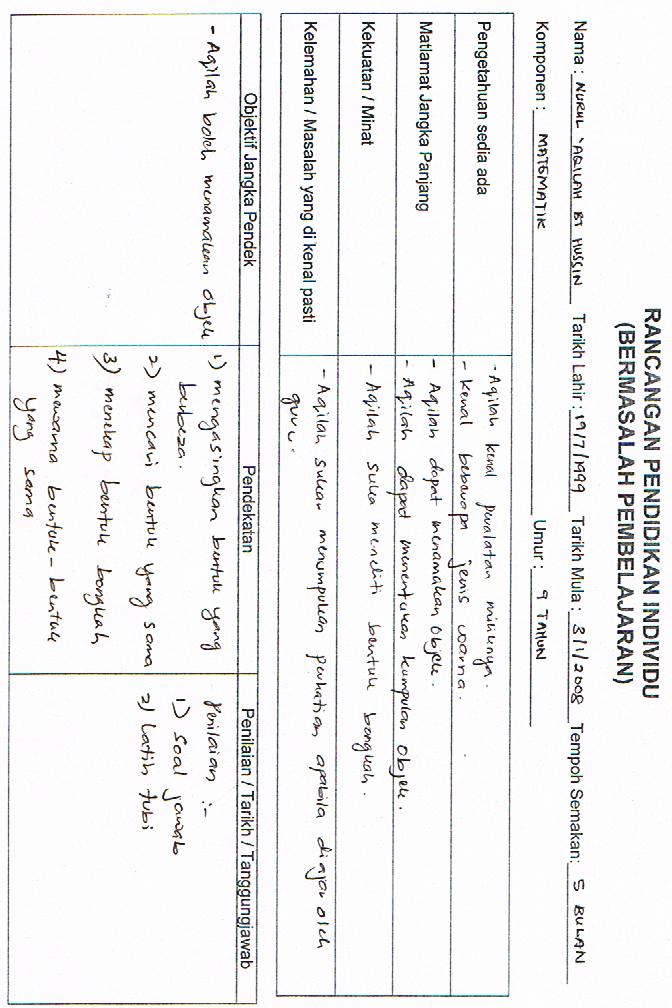 RANCANGAN PENDIDIKAN INDIVIDU
(BERMASALAH PEMBELAJARAN)
Nama : NURUL 'AQILAH BT HUSSIN Tarikh Lahir : 19/7/1999 Tarikh Mula : 3/1/2008 Tempoh Semakan: 5 BULAN
Komponen : MATEMATIK Umur : 9 TAHUN
Pengetahuan sedia ada
- Aqilah kenal peralatan miliknya.
- kenal beberapa jenis warna.
Matlamat Jangka Panjang
- Aqilah dapat menamakan objek.
- Aqilah dapat menentukan kumpulan objek.
Kekuatan / Minat
- Aqilah suka meneliti bentuk bongkah.
Kelemahan / Masalah yang di kenal pasti
- Aqilah sukar menumpukan perhatian apabila diajar oleh
guru.
Objektif Jangka Pendek
Pendekatan
Penilaian / Tarikh / Tanggungjawab
- Aqilah boleh menamakan objek
1) mengasingkan bentuk yang
berbeza.
2) mencari bentuk yang sama
3) menekap bentuk bongkah
4) mewarna bentuk-bentuk
yang sama
Penilaian :-
1) Soal jawab
2) Latih tubi